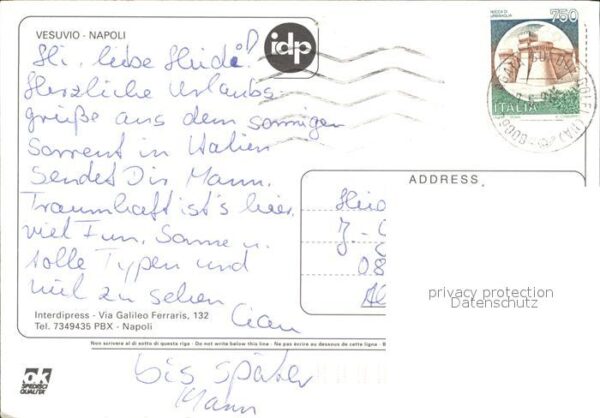 VESUVIO - NAPOLI
idp
750
ROCCA DI
URBISAGLIA
ITALIA
Hi, liebe Heide!
Herzliche Urlaubs-
grüße aus dem sonnigen
Sorrent in Italien
sendet Dir Mann.
Traumhaft ist's hier,
viel Fun, Sonne u.
tolle Typen und
viel zu sehen
Ciau
bis später
Mann
ADDRESS
Heid
J.-
08
Al
privacy protection
Datenschutz
Interdipress - Via Galileo Ferraris, 132
Tel. 7349435 PBX - Napoli
Non scrivere al di sotto di questa riga - Do not write below this line - Ne pas écrire au dessous de cette ligne -
ok
SPEDISCI
QUALITA'